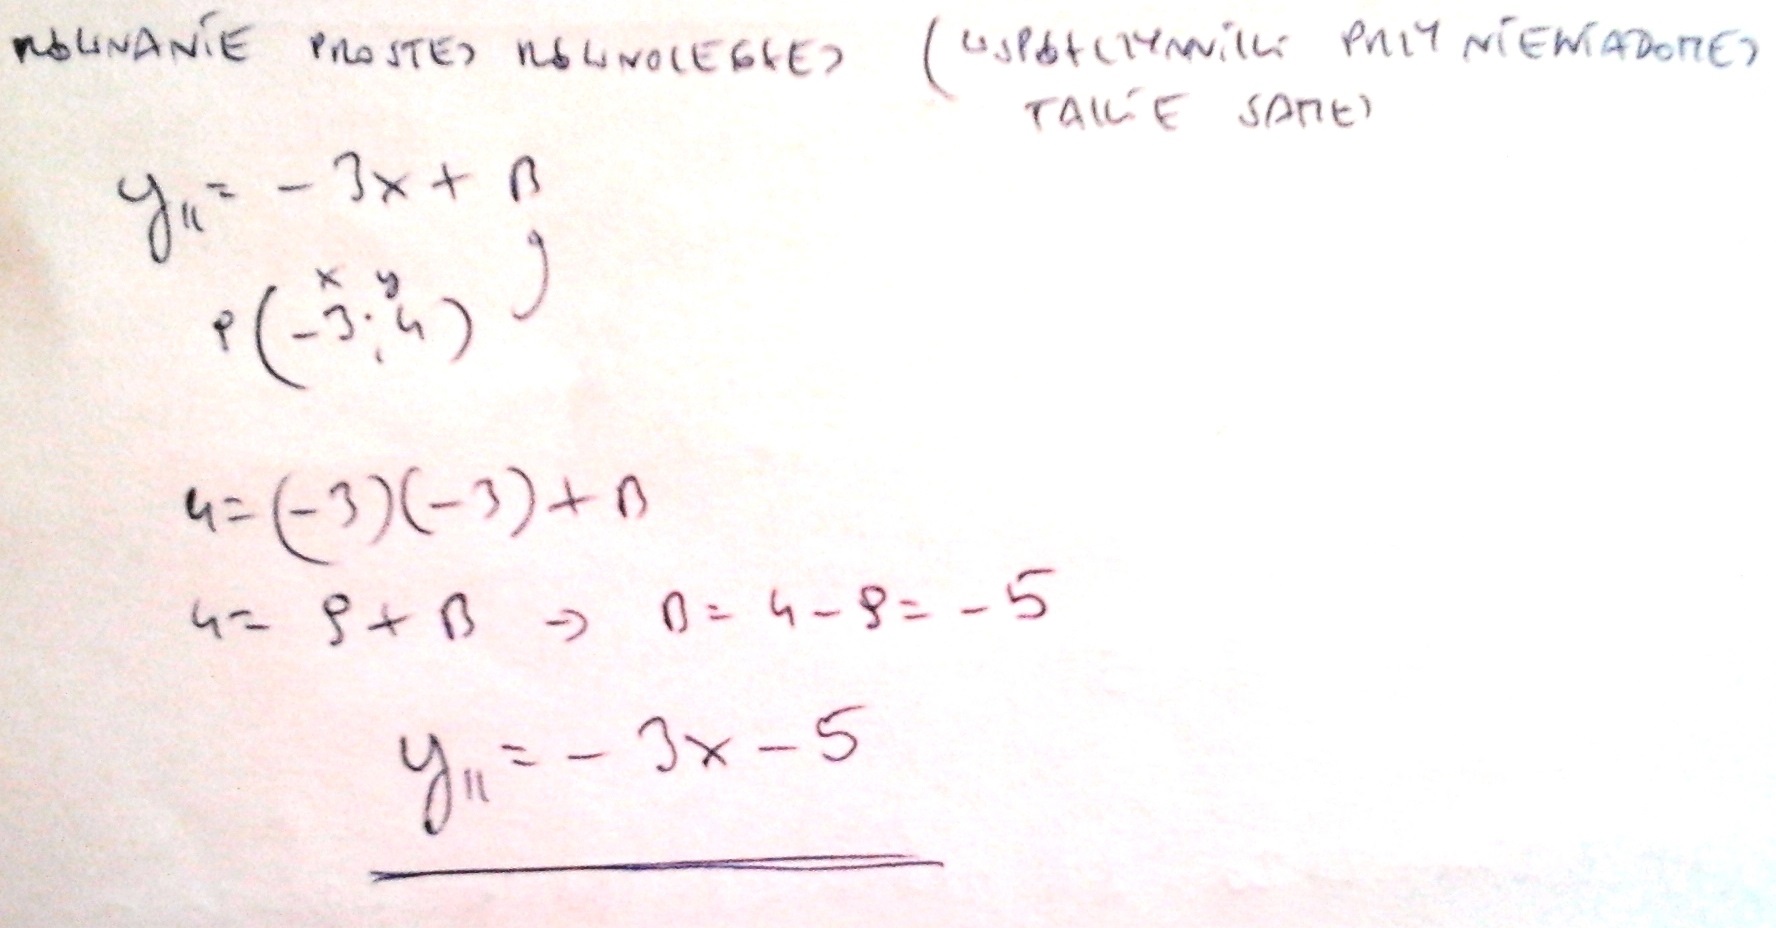 RÓWNANIE PROSTEJ RÓWNOLEGŁEJ (WSPÓŁCZYNNIKI PRZY NIEWIADOMEJ
TAKIE SAME)
y₁₁ = -3x + B
x y
P(-3; 4)
4 = (-3)(-3) + B
4 = 9 + B → B = 4 - 9 = -5
y₁₁ = -3x - 5